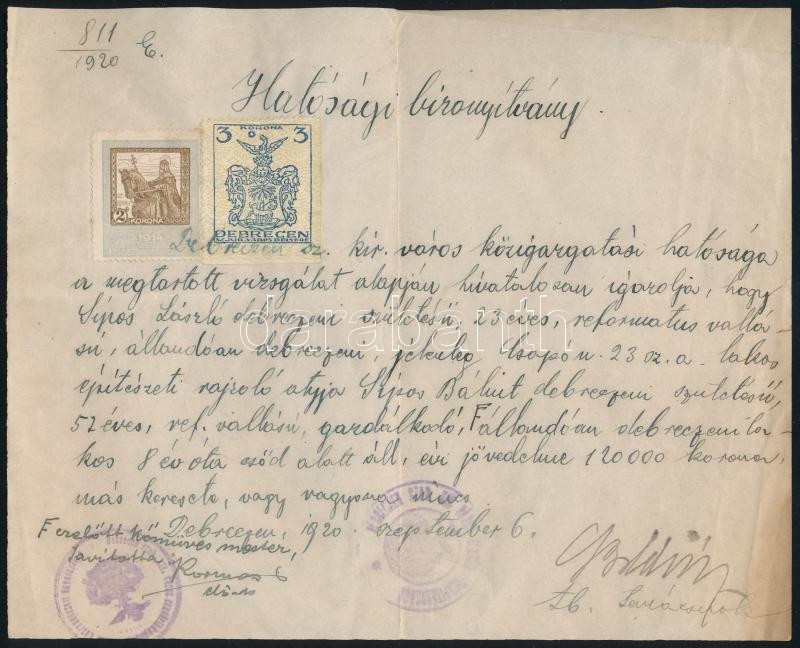 811
1920 E.
Hatósági bizonyítvány.
2 KORONA
1914
KORONA
3 3
DEBRECEN
SZ. KIR. VÁROS BÉLYEGE
Debreczen sz. kir. város közigazgatási hatósága
a megtartott vizsgálat alapján hivatalosan igazolja, hogy
Sipos László debreczeni születésü, 23 éves, reformatus vallá-
sú, állandóan debreczeni, jelenleg Csapó u. 23 sz. a. lakos
építészeti rajzoló atyja Sipos Bálint debreczeni születésü,
52 éves, ref. vallású, gazdálkodó, F állandóan debreczeni la-
kos 8 év óta csőd alatt áll, évi jövedelme 120000 korona
más keresete, vagy vagyona nincs.
Debreczen, 1920. szeptember 6.
F czelőtt Kőmüves mester,
Javította
Kormos
darabanth